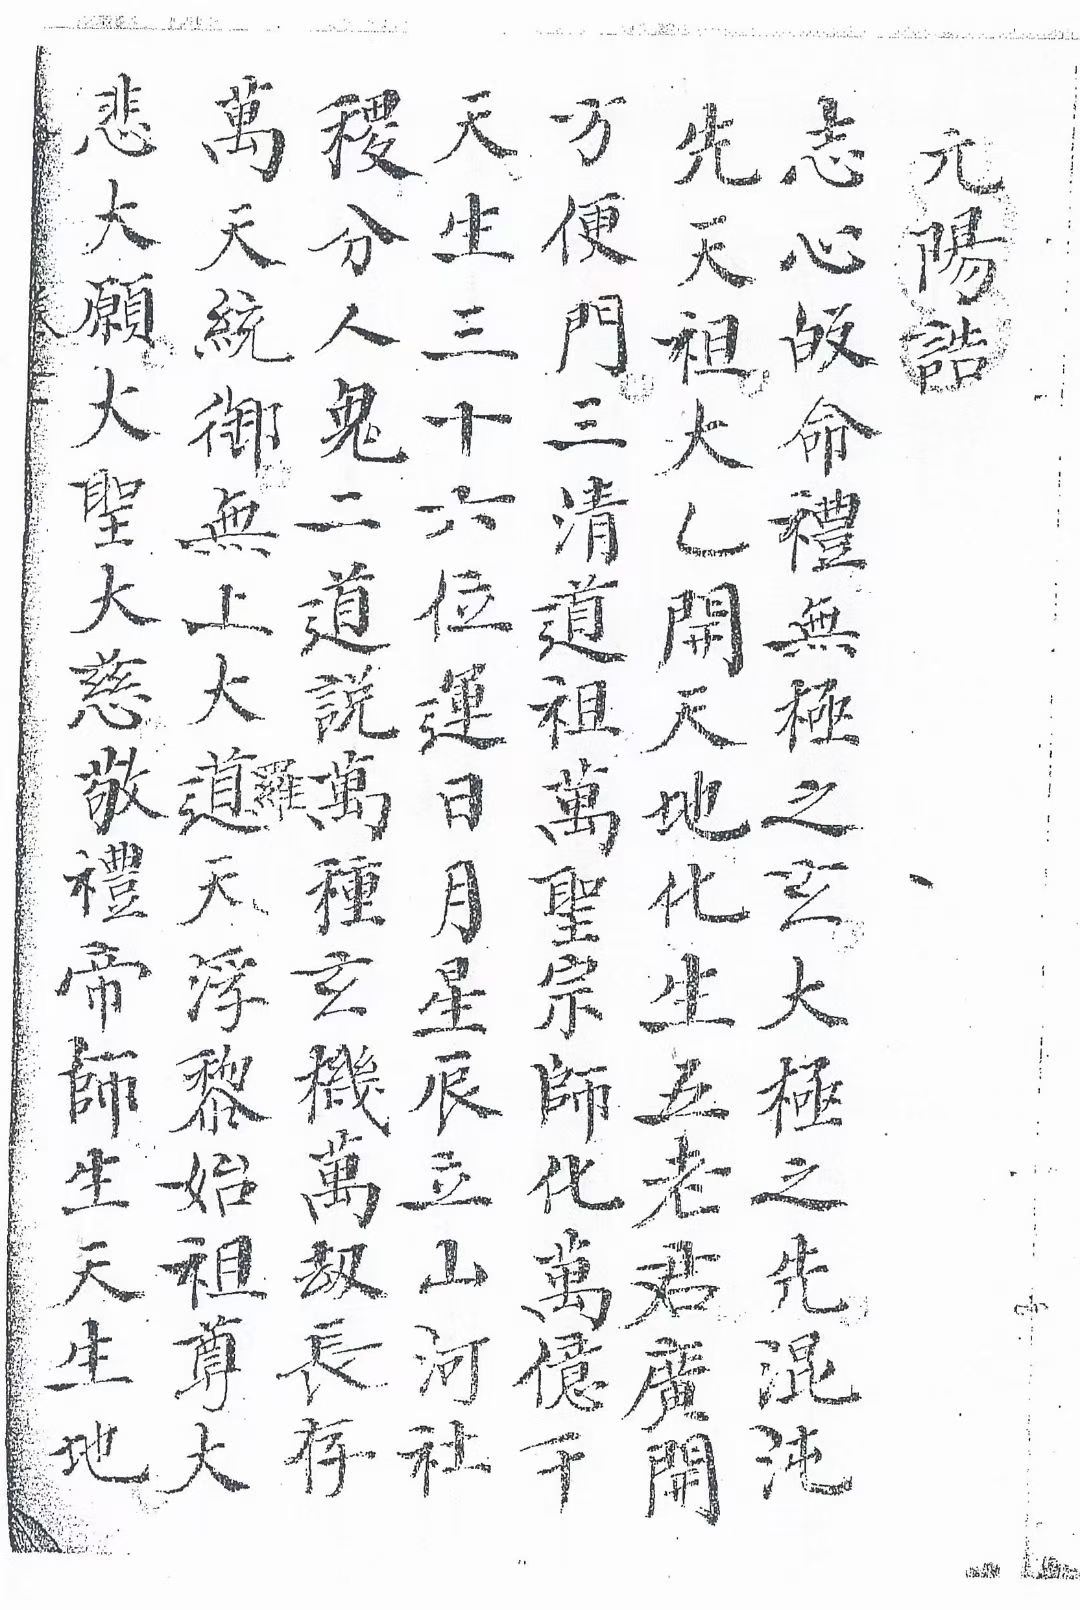 元陽誥
志心皈命禮無極之玄大極之先混沌
先天祖大乚開天地化生五老君廣開
方便門三清道祖萬聖宗師化萬億千
天生三十六位運日月星辰立山河社
稷分人鬼二道説萬種玄機萬劫長存
萬天統御無上大道羅天浮黎始祖尊大
悲大願大聖大慈敬禮帝師生天生地